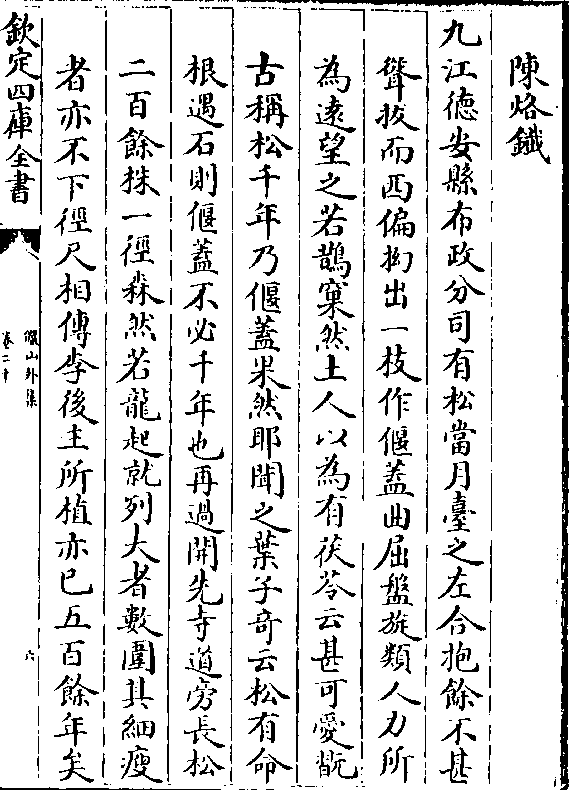 陳烙鐵
九江徳安縣布政分司有松當月臺之左合抱餘不甚
聳拔而西偏拗出一枝作偃蓋曲屈盤旋類人力所
為遠望之若鵲窠然土人以為有茯苓云甚可愛翫
古稱松千年乃偃蓋果然耶聞之葉子竒云松有命
根遇石則偃蓋不必千年也再過開先寺道旁長松
二百餘株一徑森然若龍起就列大者數圍其細瘦
者亦不下徑尺相傳李後主所植亦已五百餘年矣
欽定四庫全書
儼山外集
卷二十
六